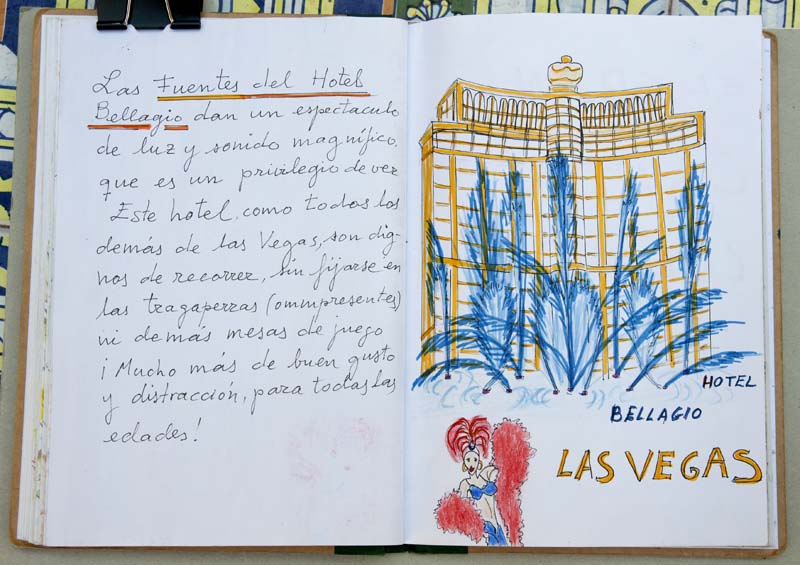 Las Fuentes del Hotel
Bellagio dan un espectaculo
de luz y sonido magnífico.
que es un privilegio de ver
Este hotel, como todos los
demás de las Vegas, son dig-
nos de recorrer, sin fijarse en
las tragaperras (omnipresentes)
ni demás mesas de juego
¡Mucho más de buen gusto
y distracción, para todas las
edades!
HOTEL
BELLAGIO
LAS VEGAS